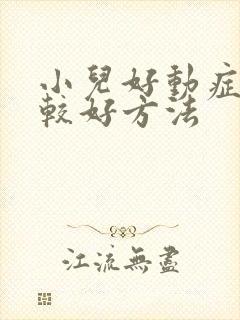 小兒好動症
較好方法
江流無盡